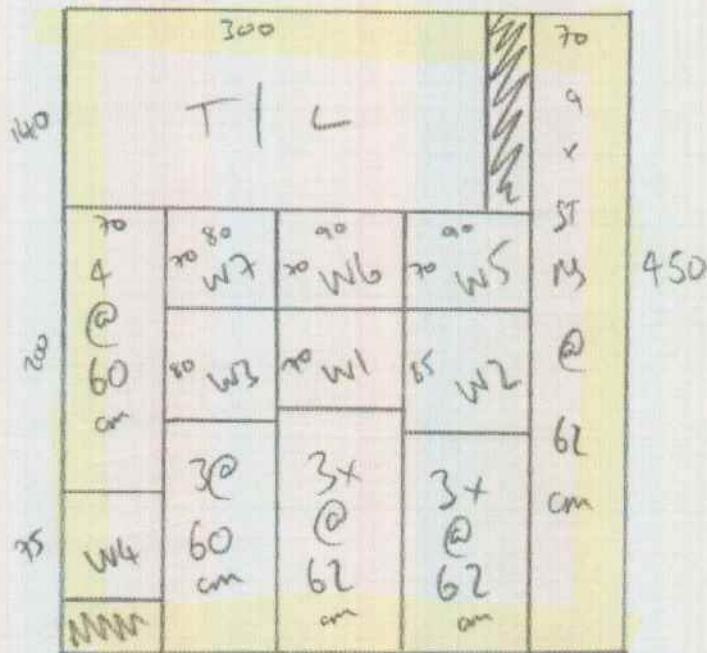 300
70
140
T/L
9
x
ST
RS
@
62
cm
450
70
4
@
60
cm
200
80
70 W7
90
70 W6
90
70 W5
80 W3
70 W1
85 W2
3@
60
cm
3x
@
62
cm
3x
@
62
cm
75
W4